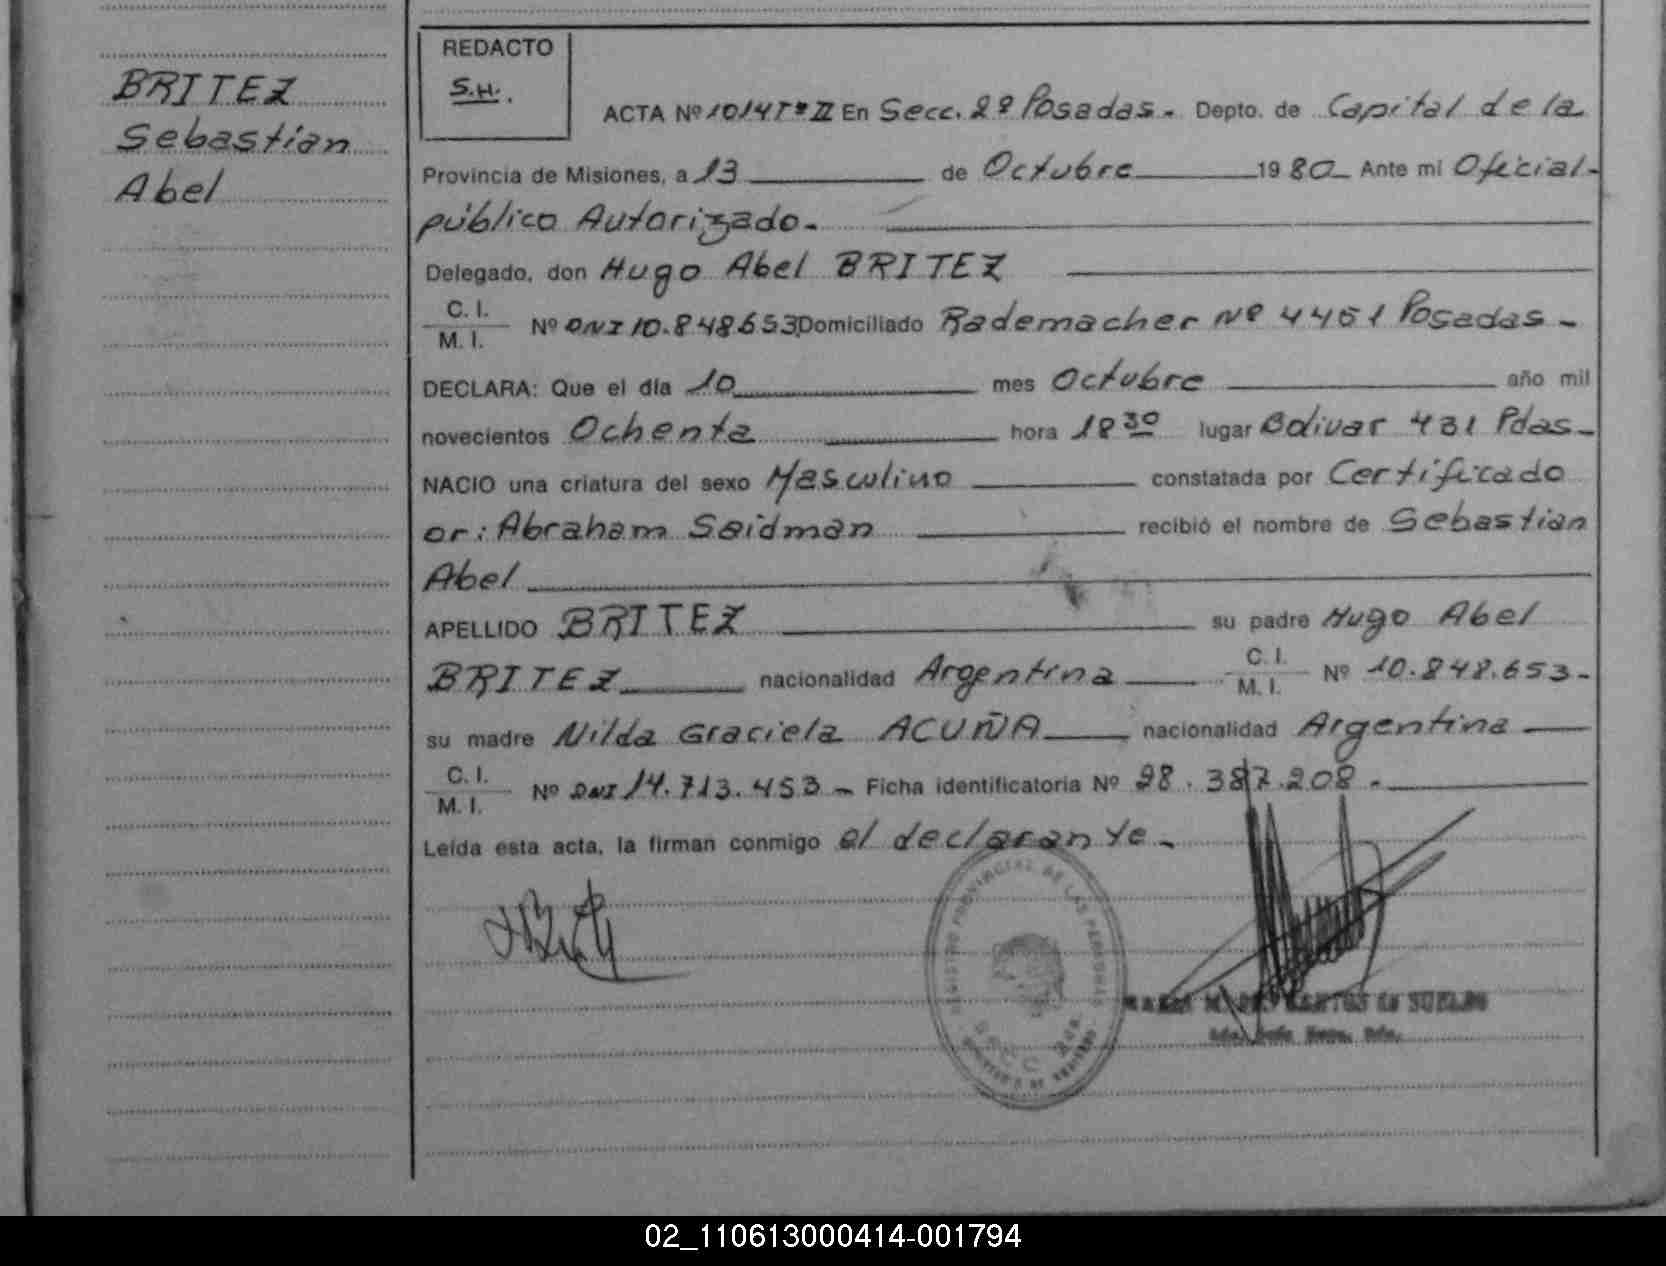 BRITEZ
Sebastián
Abel
REDACTO
S.H.
ACTA Nº 1014 Tº II En Secc. 2º Posadas.- Depto. de Capital de la
Provincia de Misiones, a 13 de Octubre 1980 Ante mi Oficial
público Autorizado.
Delegado, don Hugo Abel BRITEZ
C. I.
M. I. Nº DNI 10.848.653 Domiciliado Rademacher Nº 4461 Posadas -
DECLARA: Que el día 10 mes Octubre año mil
novecientos Ochenta hora 18 30 lugar Bolivar 431 Pdas.
NACIO una criatura del sexo Masculino constatada por Certificado
or: Abraham Saidman recibió el nombre de Sebastián
Abel
APELLIDO BRITEZ su padre Hugo Abel
BRITEZ nacionalidad Argentina C. I.
M. I. Nº 10.848.653.-
su madre Nilda Graciela ACUÑA nacionalidad Argentina
C. I.
M. I. Nº DNI 14.713.453 - Ficha identificatoria Nº 28.387.208.-
Leída esta acta, la firman conmigo el declarante.
REGISTRO PROVINCIAL DE LAS PERSONAS
SECC 2da.
02_110613000414-001794